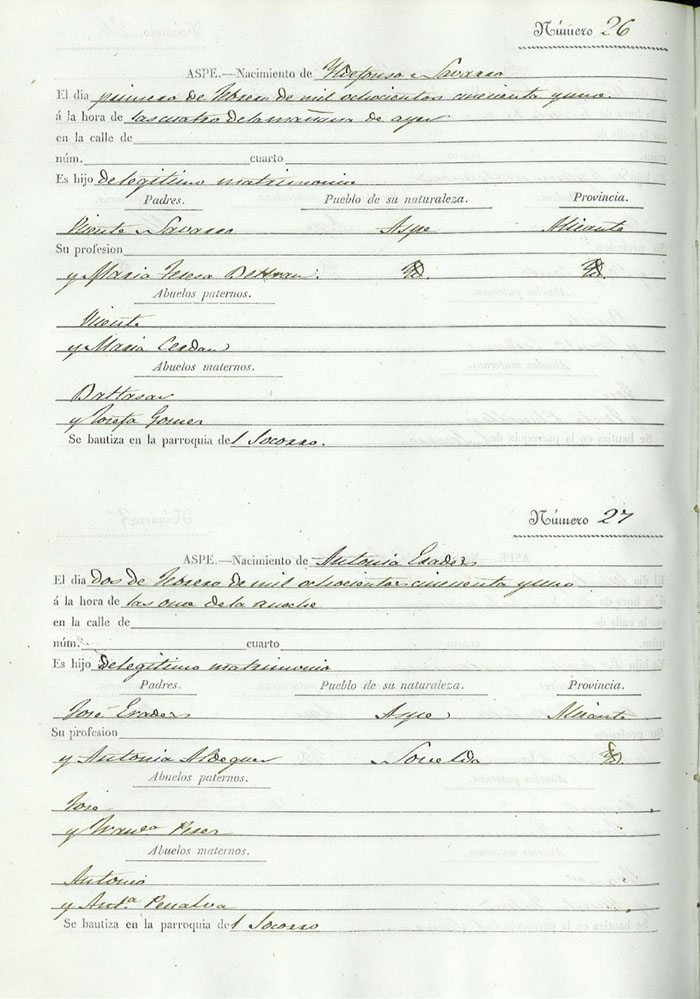 Número 26
ASPE.—Nacimiento de Yldefonso Navarro
El dia primero de Febrero de mil ochocientos cincuenta y uno
á la hora de las cuatro de la mañana de ayer
en la calle de
núm. cuarto
Es hijo de legitimo matrimonio
Padres. Pueblo de su naturaleza. Provincia.
Vicente Navarro Aspe Alicante
Su profesion
y Maria Teresa Beltran. Yd. Yd.
Abuelos paternos.
Vicente
y Maria Cerdan
Abuelos maternos.
Baltasar
y Josefa Gomez
Se bautiza en la parroquia del Socorro.
Número 27
ASPE.—Nacimiento de Antonia Erades
El dia dos de Febrero de mil ochocientos cincuenta y uno
á la hora de las once de la noche
en la calle de
núm. cuarto
Es hijo de legitimo matrimonio
Padres. Pueblo de su naturaleza. Provincia.
José Erades Aspe Alicante
Su profesion
y Antonia Aldeguer Novelda Yd.
Abuelos paternos.
José
y Franca
Abuelos maternos.
Antonio
y Anta Penalva
Se bautiza en la parroquia del Socorro